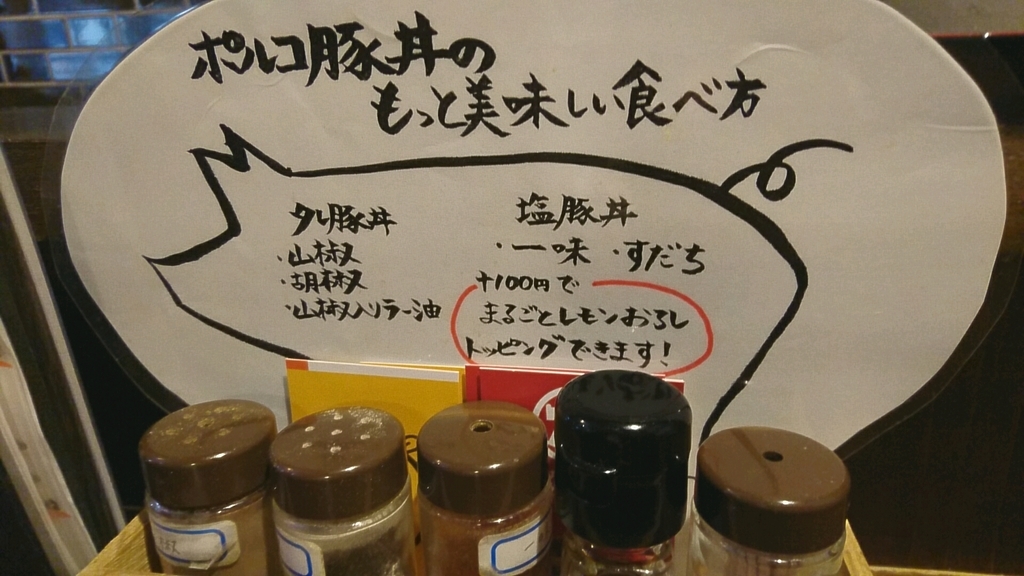 ポルコ豚丼の
もっと美味しい食べ方
タレ豚丼
・山椒
・胡椒
・山椒入りラー油
塩豚丼
・一味 ・すだち
+100円で
まるごとレモンおろし
トッピングできます!